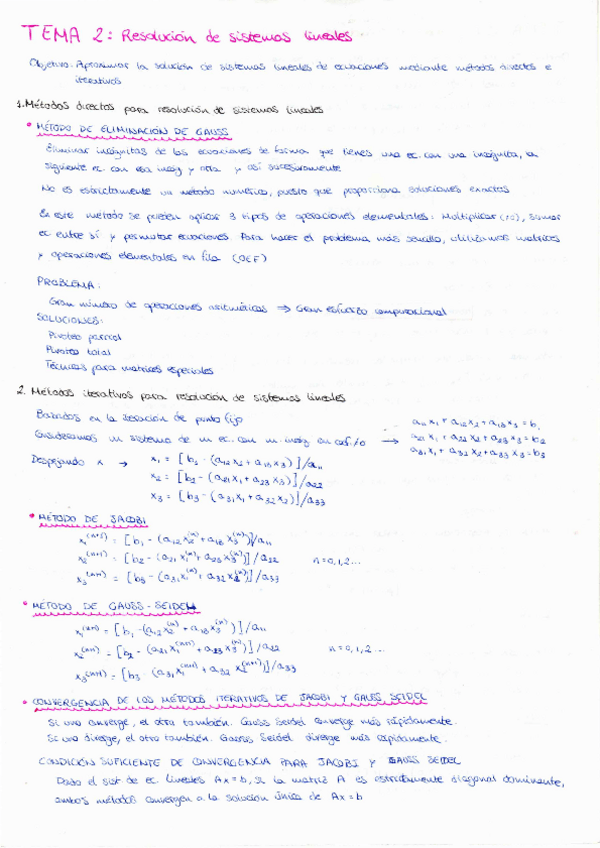 TEMA 2: Resolución de sistemas lineales
Objetivo: Aproximar la solución de sistemas lineales de ecuaciones mediante métodos directos e
iterativos
1. Métodos directos para resolución de sistemas lineales
• MÉTODO DE ELIMINACIÓN DE GAUSS
Eliminar incógnitas de las ecuaciones de forma que tienes una ec. con una incógnita, la
siguiente ec. con esa incog y otra y así sucesivamente
No es estrictamente un método numérico, puesto que proporciona soluciones exactas
En este método se pueden aplicar 3 tipos de operaciones elementales: Multiplicar (≠0), sumar
ec entre sí y permutar ecuaciones. Para hacer el problema más sencillo, utilizamos matrices
y operaciones elementales en fila (OEF)
PROBLEMA:
Gran número de operaciones aritméticas ⇒ Gran esfuerzo computacional
SOLUCIONES:
Pivoteo parcial
Pivoteo total
Técnicas para matrices especiales
2. Métodos iterativos para resolución de sistemas lineales
Basados en la iteración de punto fijo
Consideramos un sistema de m ec. con m incóg con aii≠0 → a11x1 + a12x2 + a13x3 = b1
a21x1 + a22x2 + a23x3 = b2
a31x1 + a32x2 + a33x3 = b3
Despejando x → x1 = [b1 - (a12x2 + a13x3)]/a11
x2 = [b2 - (a21x1 + a23x3)]/a22
x3 = [b3 - (a31x1 + a32x2)]/a33
• MÉTODO DE JACOBI
x1^(n+1) = [b1 - (a12x2^(n) + a13x3^(n))]/a11
x2^(n+1) = [b2 - (a21x1^(n) + a23x3^(n))]/a22 n=0,1,2...
x3^(n+1) = [b3 - (a31x1^(n) + a32x2^(n))]/a33
• MÉTODO DE GAUSS-SEIDEL
x1^(n+1) = [b1 - (a12x2^(n) + a13x3^(n))]/a11
x2^(n+1) = [b2 - (a21x1^(n+1) + a23x3^(n))]/a22 n=0,1,2...
x3^(n+1) = [b3 - (a31x1^(n+1) + a32x2^(n+1))]/a33
• CONVERGENCIA DE LOS MÉTODOS ITERATIVOS DE JACOBI Y GAUSS SEIDEL
Si uno converge, el otro también. Gauss Seidel converge más rápidamente.
Si uno diverge, el otro también. Gauss Seidel diverge más rápidamente.
CONDICIÓN SUFICIENTE DE CONVERGENCIA PARA JACOBI Y GAUSS SEIDEL
Dado el sist de ec. lineales Ax=b, si la matriz A es estrictamente diagonal dominante,
ambos métodos convergen a la solución única de Ax=b